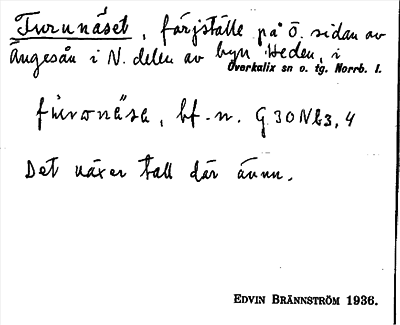 Furunäset, färjställe på Ö. sidan av
Ängesån i N. delen av byn Heden, i
Överkalix sn o. tg. Norrb. l.
bf. n. G 30
Det växer tall där ännu.
EDVIN BRÄNNSTRÖM 1936.